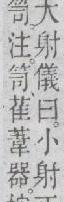 大射儀曰小射
笥注笥萑葦器